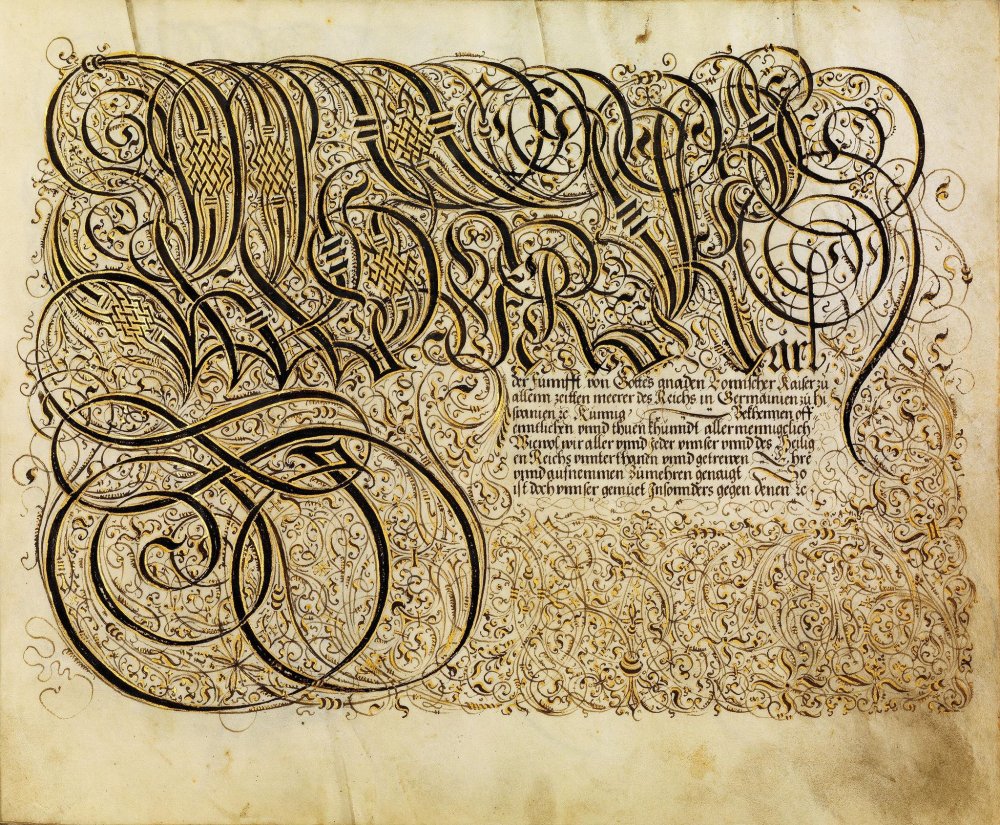 Karl
der funnfft von Gottes gnaden Romischer Kaiser zu
allenn zeitten meerer des Reichs in Germainien zu hi
spanien ꝛc Kunnig Bekhennen off
enntlichen vnnd thuen khunndt allermennigelich
Wiewol wir aller vnnd jeder vnnser vnnd des Heilig
en Reichs vnnterthanen vnnd getrewen Ehre
vnnd aufnemmen zumehren genaigt So
ist doch vnnser gemüet Insonnders gegen denen ꝛc